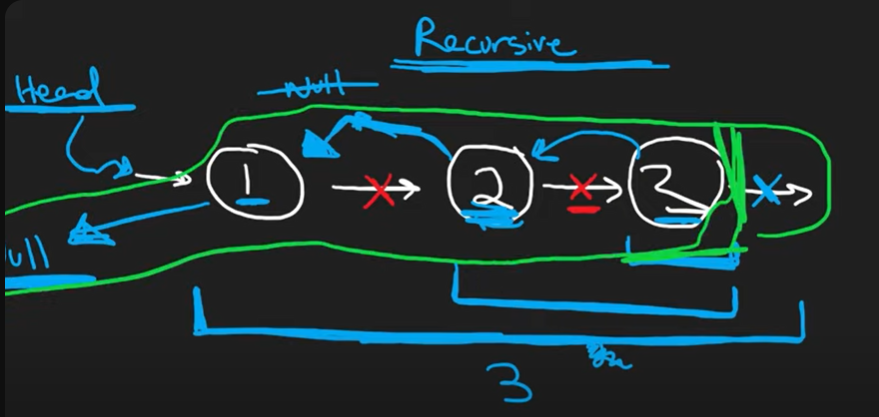 Recursive
Head
Null
1 2 3
ull
3